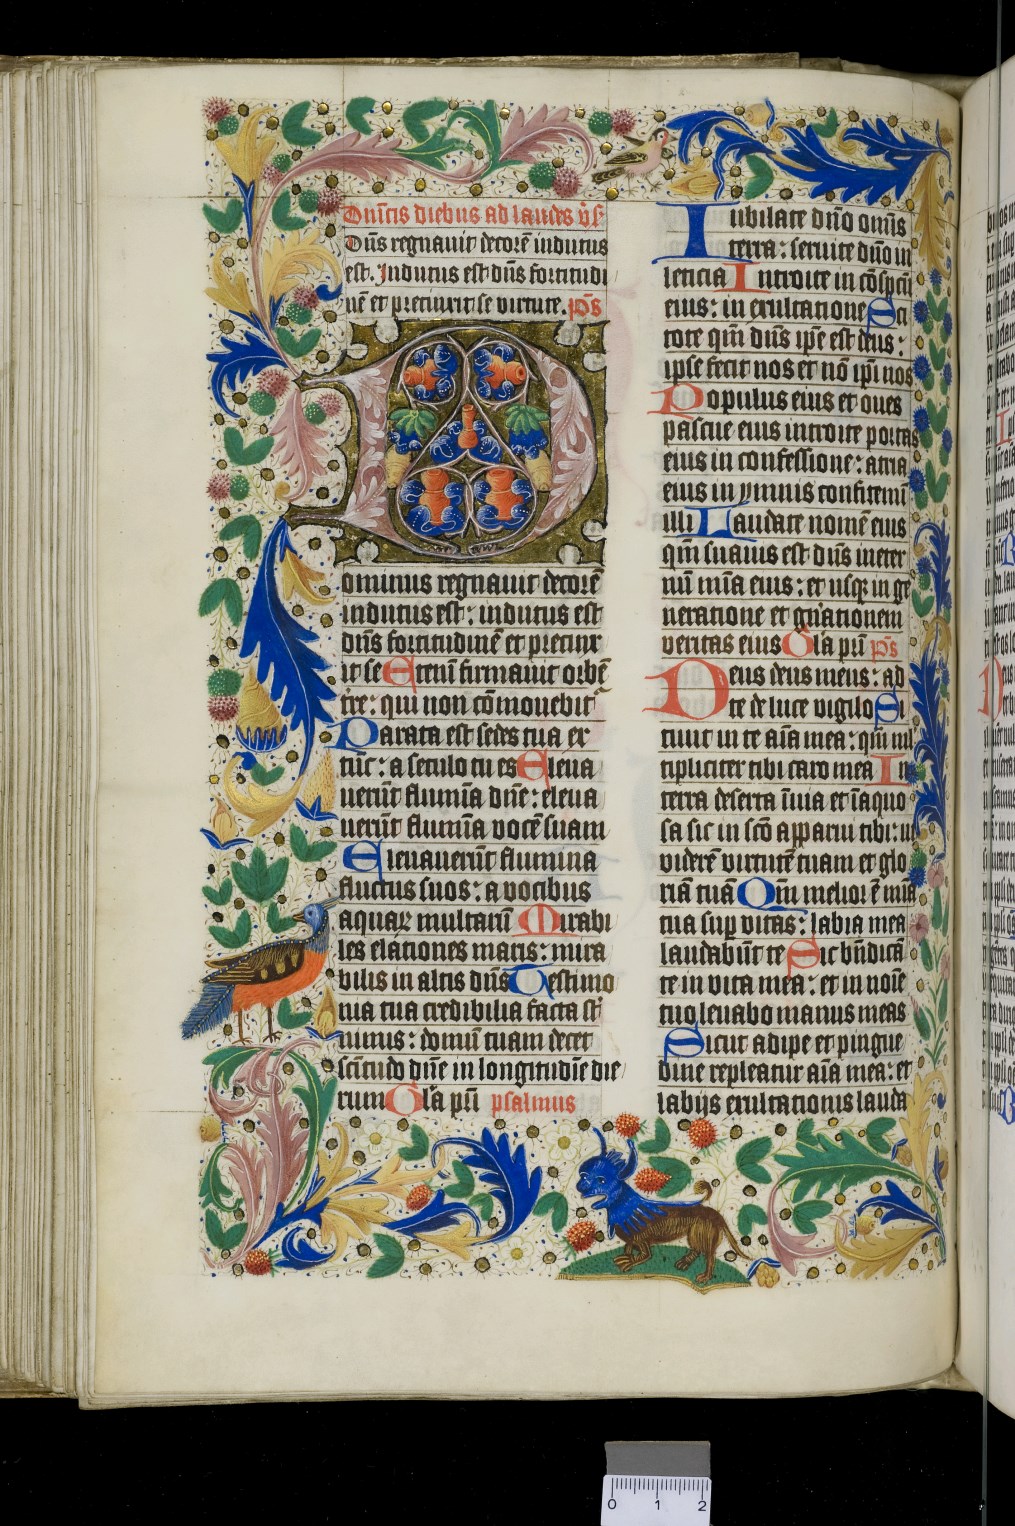 Dn̄icis diebus ad laudes v̄s
Dn̄s regnauit decorē indutus
est. Indutus est dn̄s fortitudi
nē et precinxit se virtute. ps̄
D
ominus regnauit decorē
indutus est: indutus est
dn̄s fortitudinē et precinx
it se Etenī firmauit orbē
tre: qui non cōmouebit̄
Parata est sedes tua ex
tūc: a seculo tu es Eleua
uerūt flumīa dn̄e: eleua
uerūt flumīa vocē suam
Eleuauerūt flumina
fluctus suos: a vocibus
aquaꝝ multarū Mirabi
les elationes maris: mira
bilis in altis dn̄s Testimo
nia tua credibilia facta st̄
nimis: domū tuam decet
sc̄titudo dn̄e in longitudīe die
rum Gl̄a pr̄i psalmus
Iubilate dn̄o om̄is
terra: seruite dn̄o in
leticia Introite in cōspcū
eius: in exultatione Sci
tote qm̄ dn̄s ip̄e est deus:
ipse fecit nos et nō ip̄i nos
Populus eius et oues
pascue eius introite portas
eius in confessione: atria
eius in ymnis confitemī
illi Laudate nomē eius
qm̄ suauis est dn̄s in eter
nū mīa eius: et usqꝫ in ge
neratione et gn̄ationem
veritas eius Gl̄a pr̄i ps̄
Deus deus meus: ad
te de luce vigilo Si
tiuit in te aīa mea: qm̄ mul
tipliciter tibi caro mea In
terra deserta īuia et īaquo
sa sic in sc̄o apparui tibi: ut
viderē virtutē tuam et glo
riā tuā Qm̄ melior ē mīa
tua sup̄ vitas: labia mea
laudabūt te Sic bn̄dicā
te in vita mea: et in noīe
tuo leuabo manus meas
Sicut adipe et pingue
dine repleatur aīa mea: et
labijs exultationis lauda
0 1 2